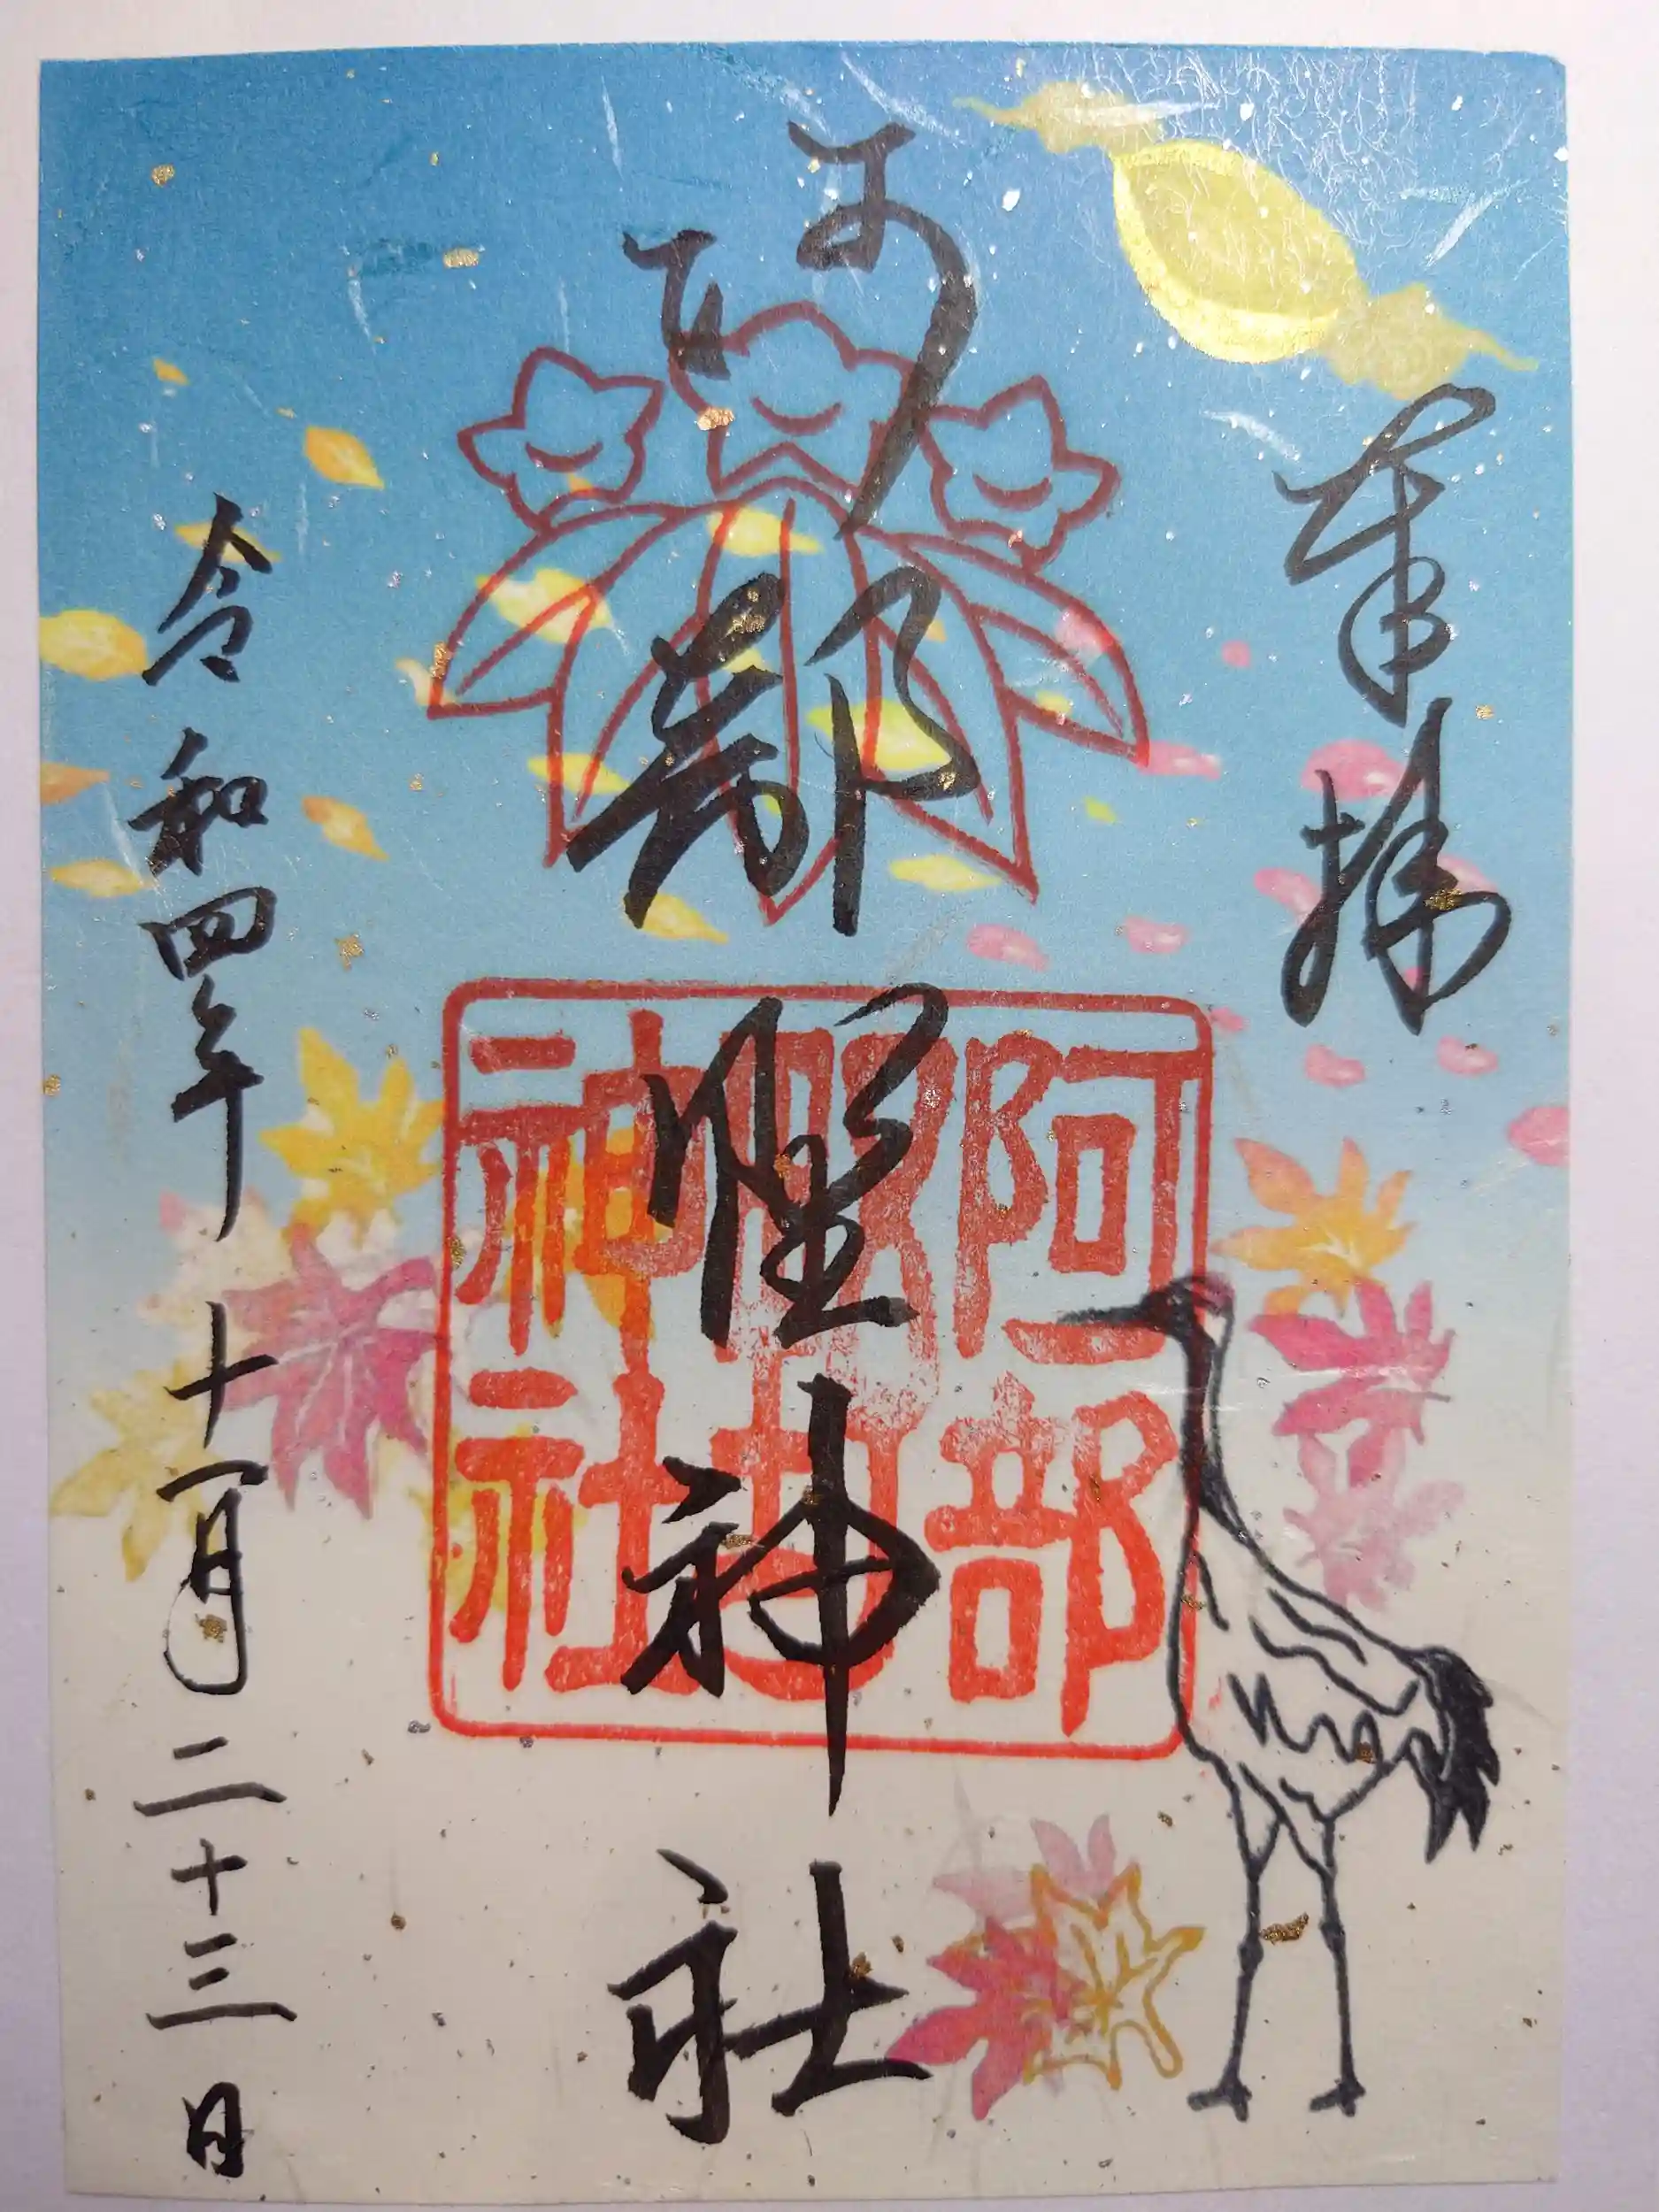 奉拝
阿部野神社
阿部野神社
令和四年十一月二十三日